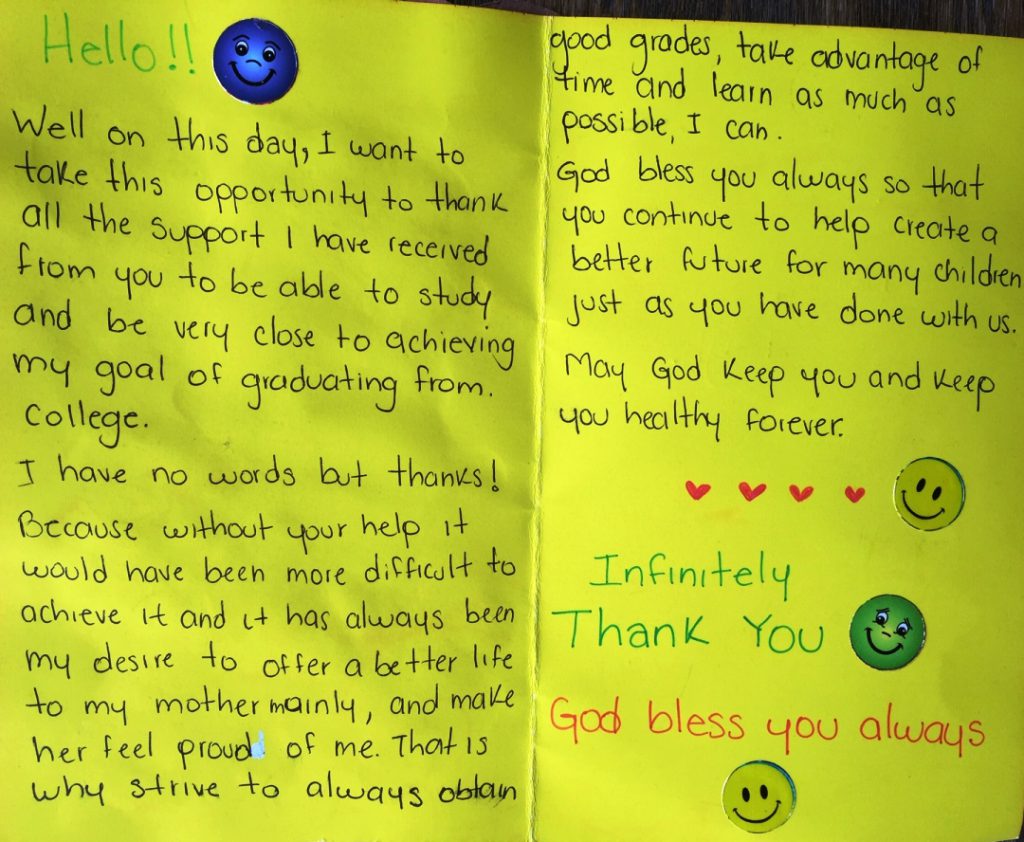 Hello!!
Well on this day, I want to
take this opportunity to thank
all the support I have received
from you to be able to study
and be very close to achieving
my goal of graduating from.
College.
I have no words but thanks!
Because without your help it
would have been more difficult to
achieve it and it has always been
my desire to offer a better life
to my mother mainly, and make
her feel proud of me. That is
why strive to always obtain
good grades, take advantage of
time and learn as much as
possible, I can.
God bless you always so that
you continue to help create a
better future for many children
just as you have done with us.
May God keep you and keep
you healthy forever.
Infinitely
Thank You
God bless you always